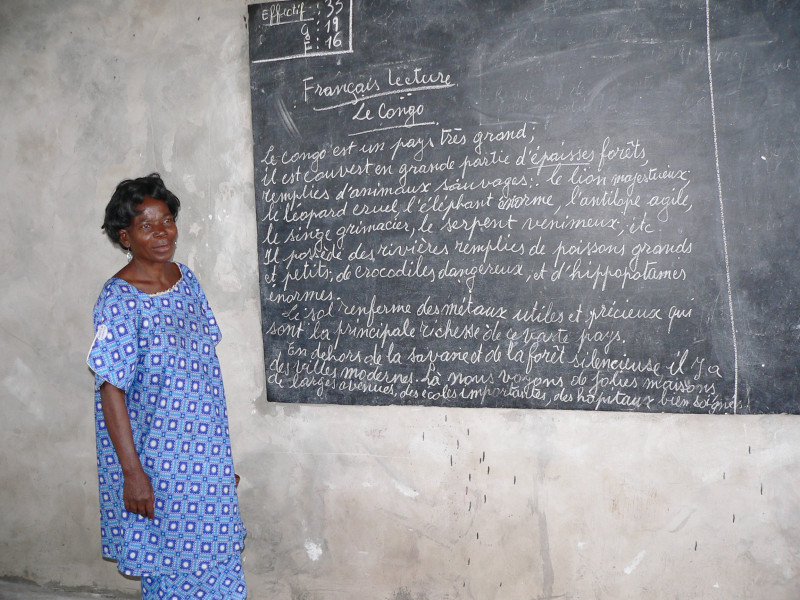 Effectif : 35
G : 19
F : 16
Français lecture
Le Congo
Le congo est un pays très grand;
il est couvert en grande partie d'épaisses forêts,
remplies d'animaux sauvages: le lion majestueux,
le léopard cruel, l'éléphant énorme, l'antilope agile,
le singe grimacier, le serpent venimeux, etc
Il possède des rivières remplies de poissons grands
et petits, de crocodiles dangereux, et d'hippopotames
énormes.
Le sol renferme des métaux utiles et précieux qui
sont la principale richesse de ce vaste pays.
En dehors de la savane et de la forêt silencieuse il y a
des villes modernes. Là nous voyons de jolies maisons
de larges avenues, des écoles importantes, des hôpitaux bien soignés